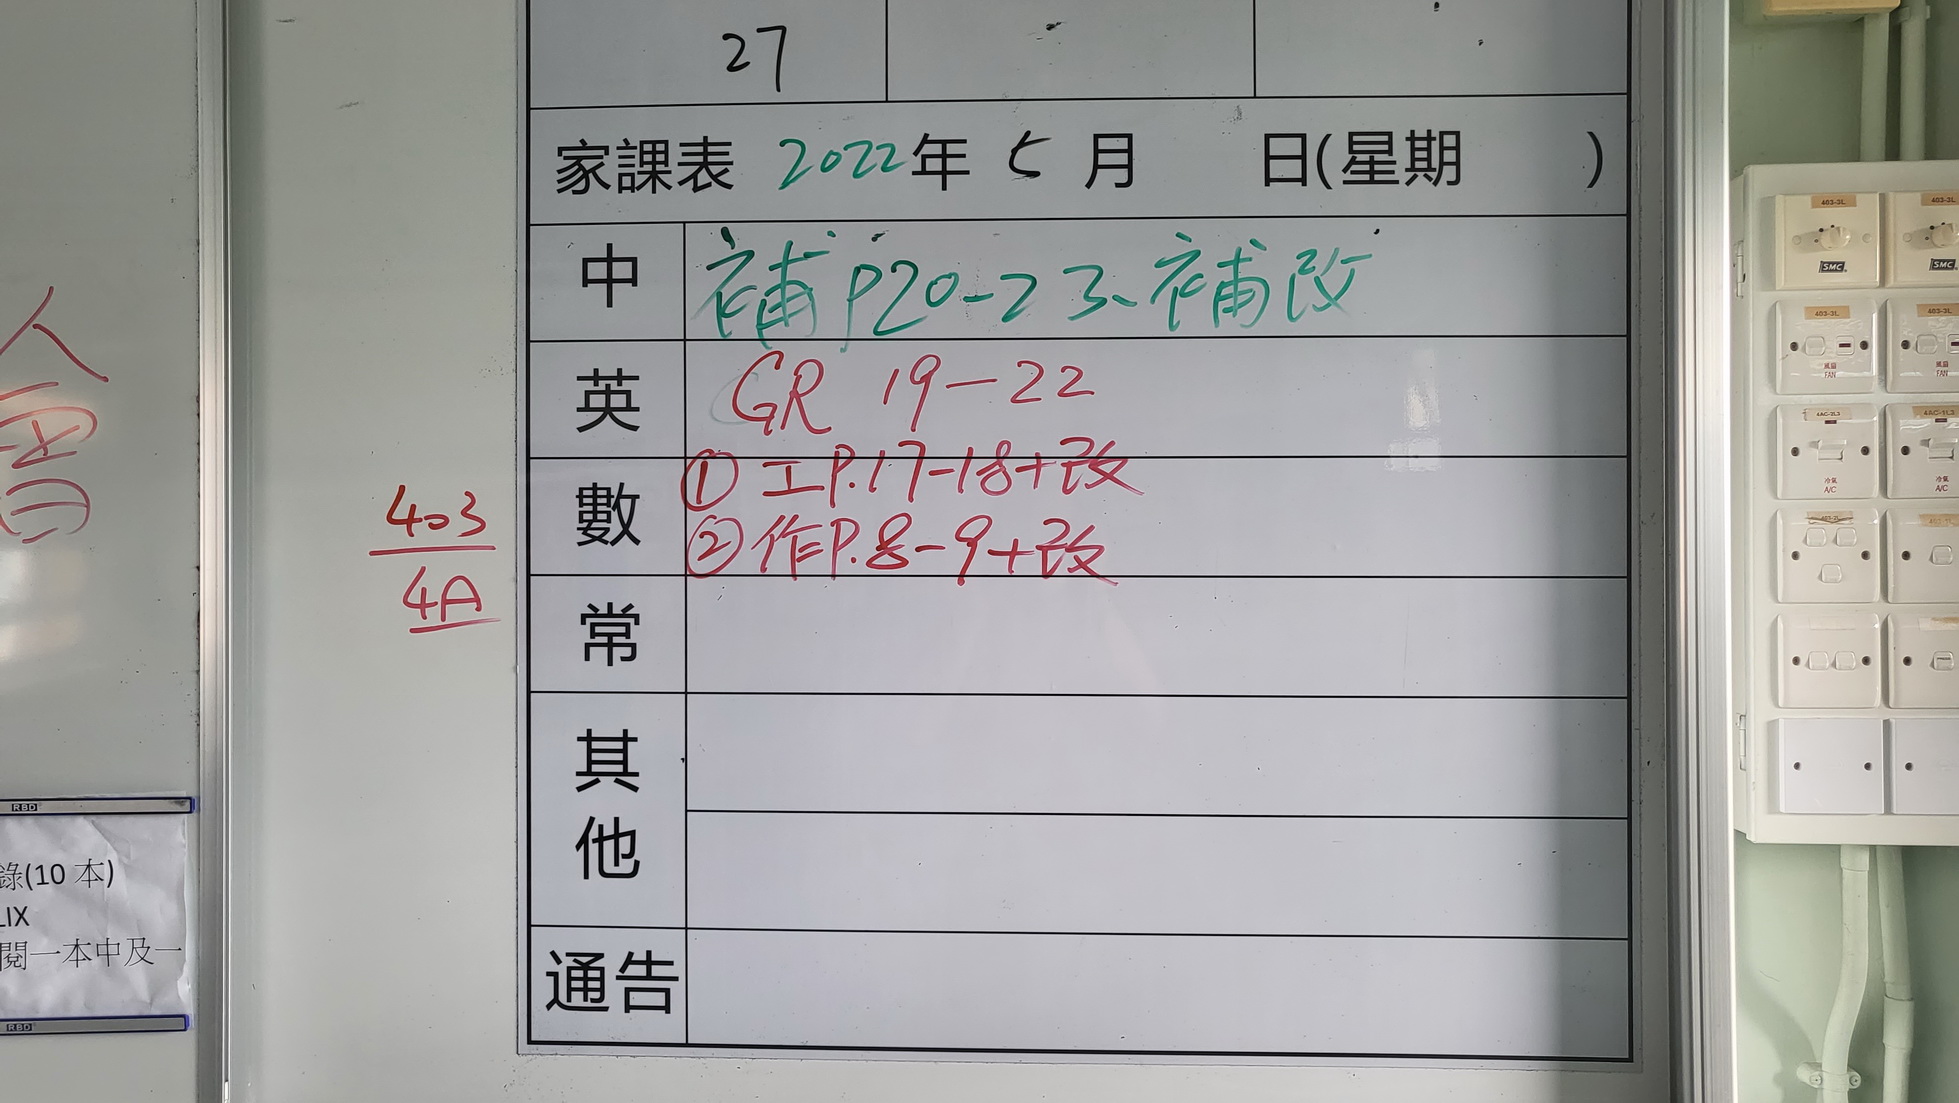 27
家課表 2022年 5 月 日(星期 )
中 補P20-23、補改
英 GR 19-22
數 ① 工P.17-18+改
② 作P.8-9+改
常
其他
通告
403
4A
人
RBD
錄(10 本)
LIX
閱一本中及一
RBD
403-3L
403-3L
SMC
SMC
403-3L
403-3L
風扇
FAN
風扇
FAN
4AC-2L3
4AC-1L3
冷氣
A/C
冷氣
A/C